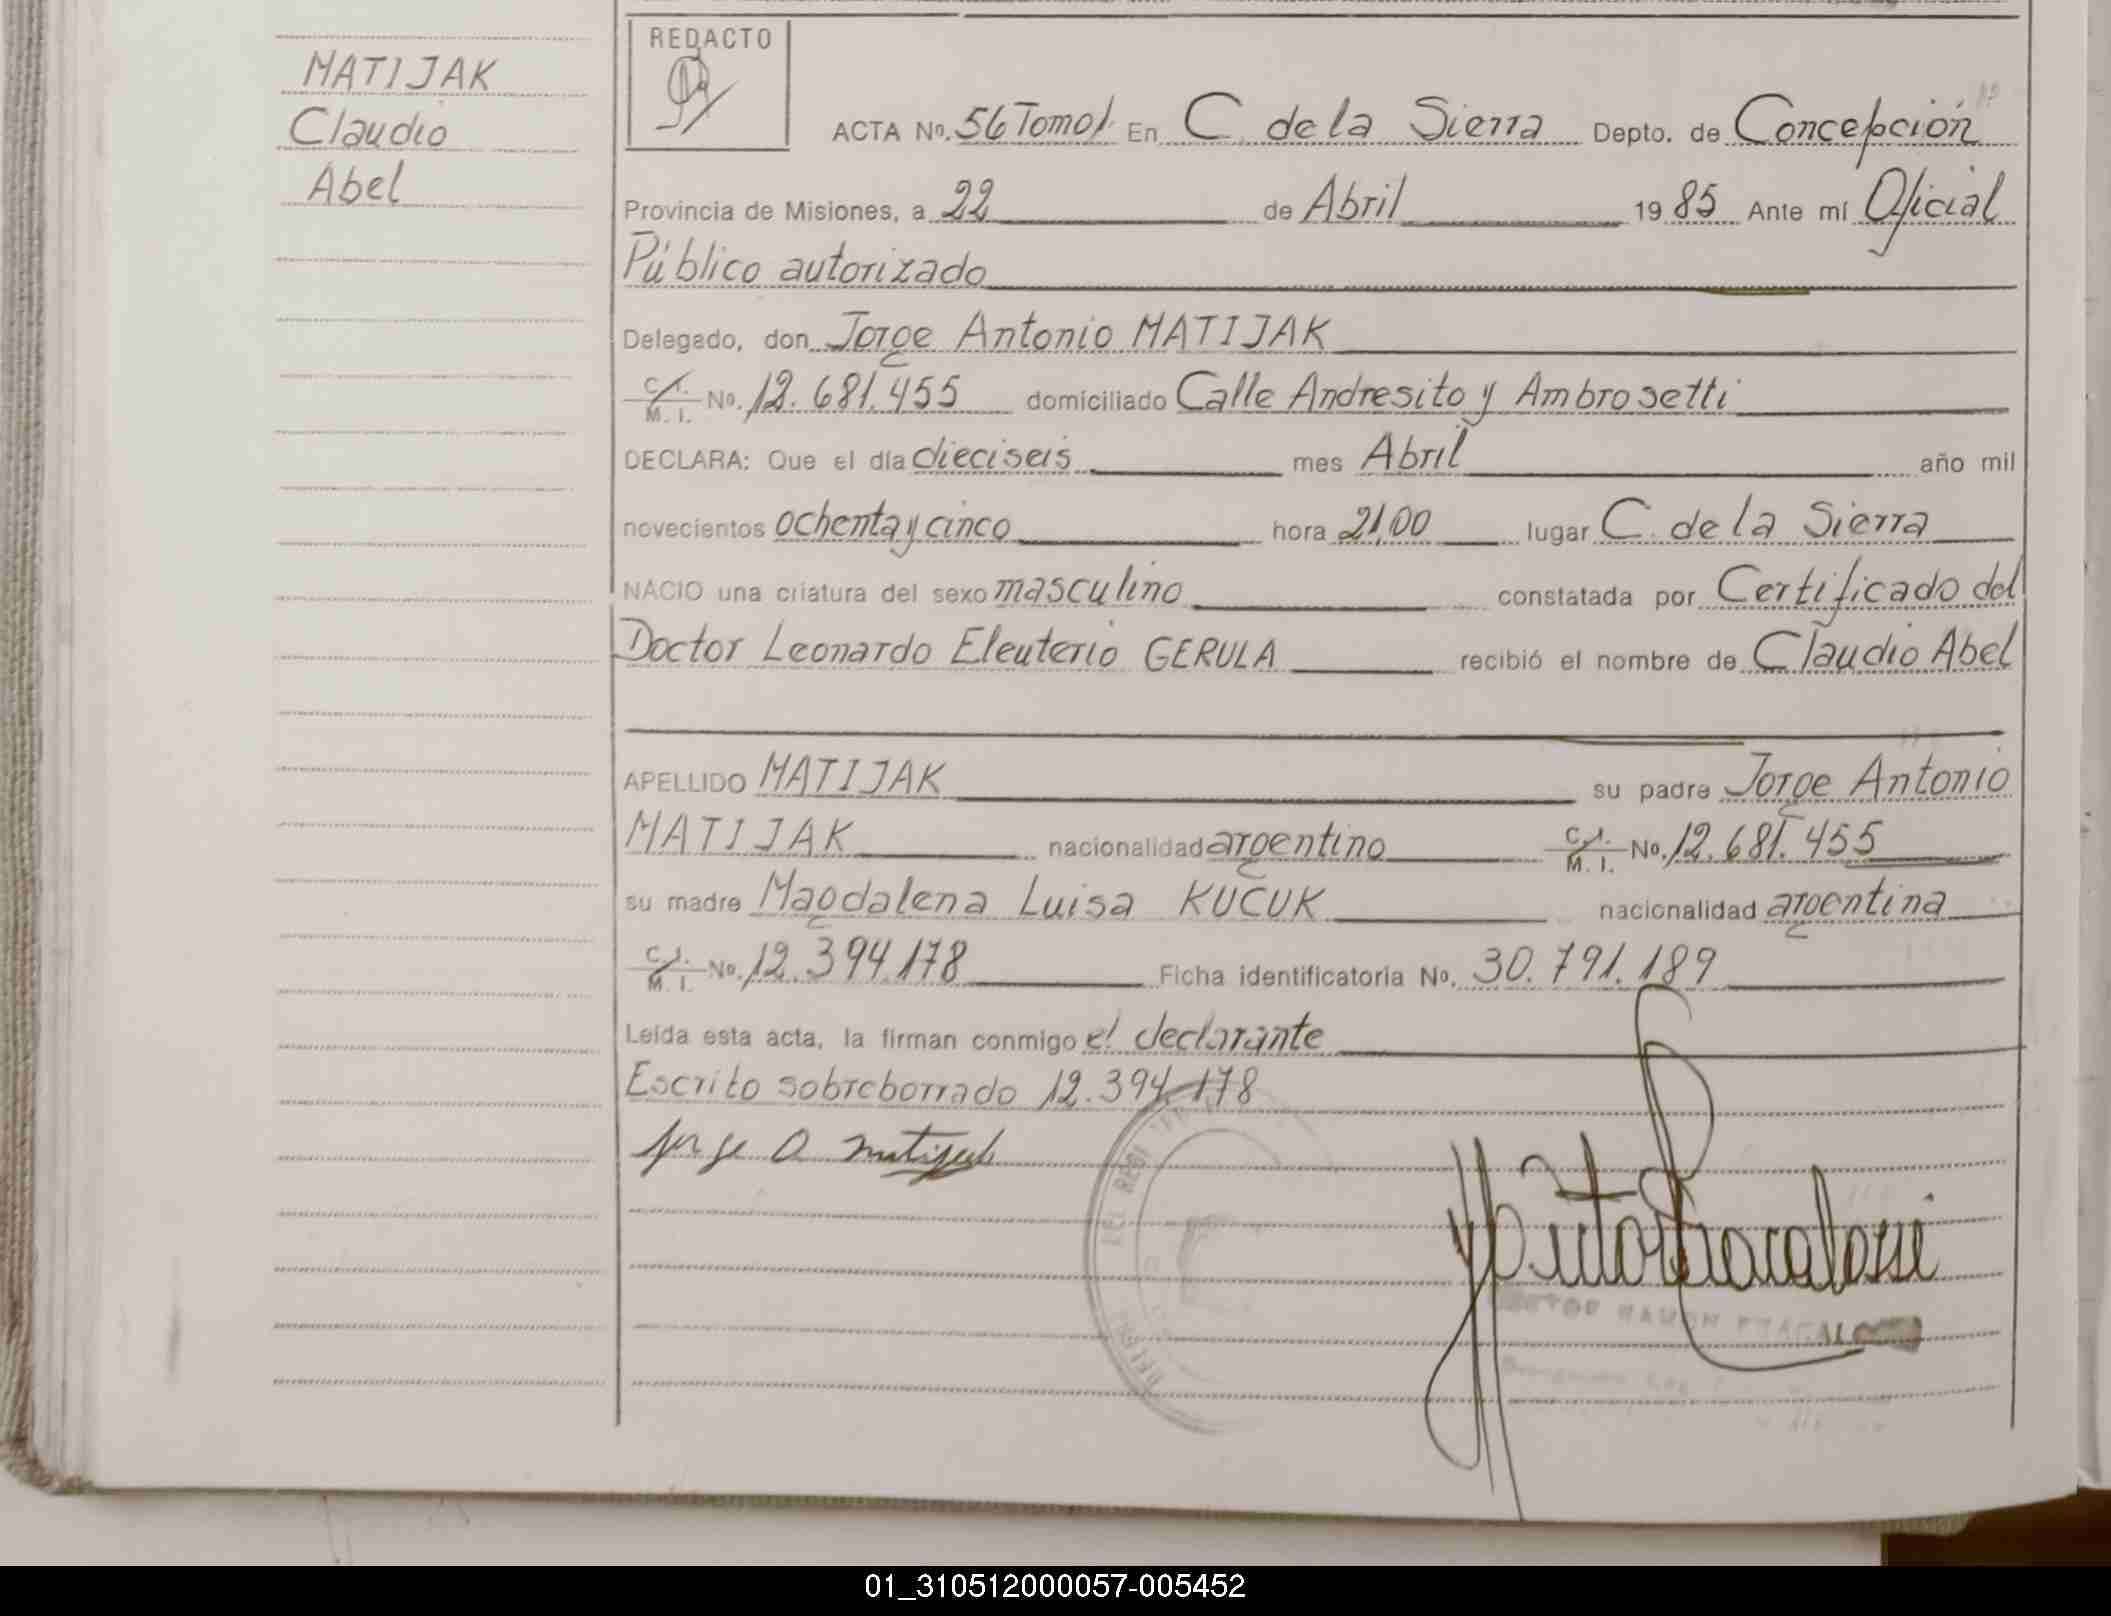 MATIJAK
Claudio
Abel
REDACTO
ACTA No. 56 Tomo 1. En C. de la Sierra Depto. de Concepción
Provincia de Misiones, a 22 de Abril 1985 Ante mí Oficial
Público autorizado
Delegado, don Jorge Antonio MATIJAK
C. I. M. I. No. 12.681.455 domiciliado Calle Andresito y Ambrosetti
DECLARA: Que el día dieciseis mes Abril año mil
novecientos ochenta y cinco hora 21,00 lugar C. de la Sierra
NACIO una criatura del sexo masculino constatada por Certificado del
Doctor Leonardo Eleuterio GERULA recibió el nombre de Claudio Abel
APELLIDO MATIJAK su padre Jorge Antonio
MATIJAK nacionalidad argentino C. I. M. I. No. 12.681.455
su madre Magdalena Luisa KUCUK nacionalidad argentina
C. I. M. I. No. 12.394.178 Ficha identificatoria No. 30.791.189
Leída esta acta, la firman conmigo el declarante
Escrito sobreborrado 12.394.178
Jorge A Matijak
DEL REGI
HECTOR RAMON FRACALOSSI
01_310512000057-005452